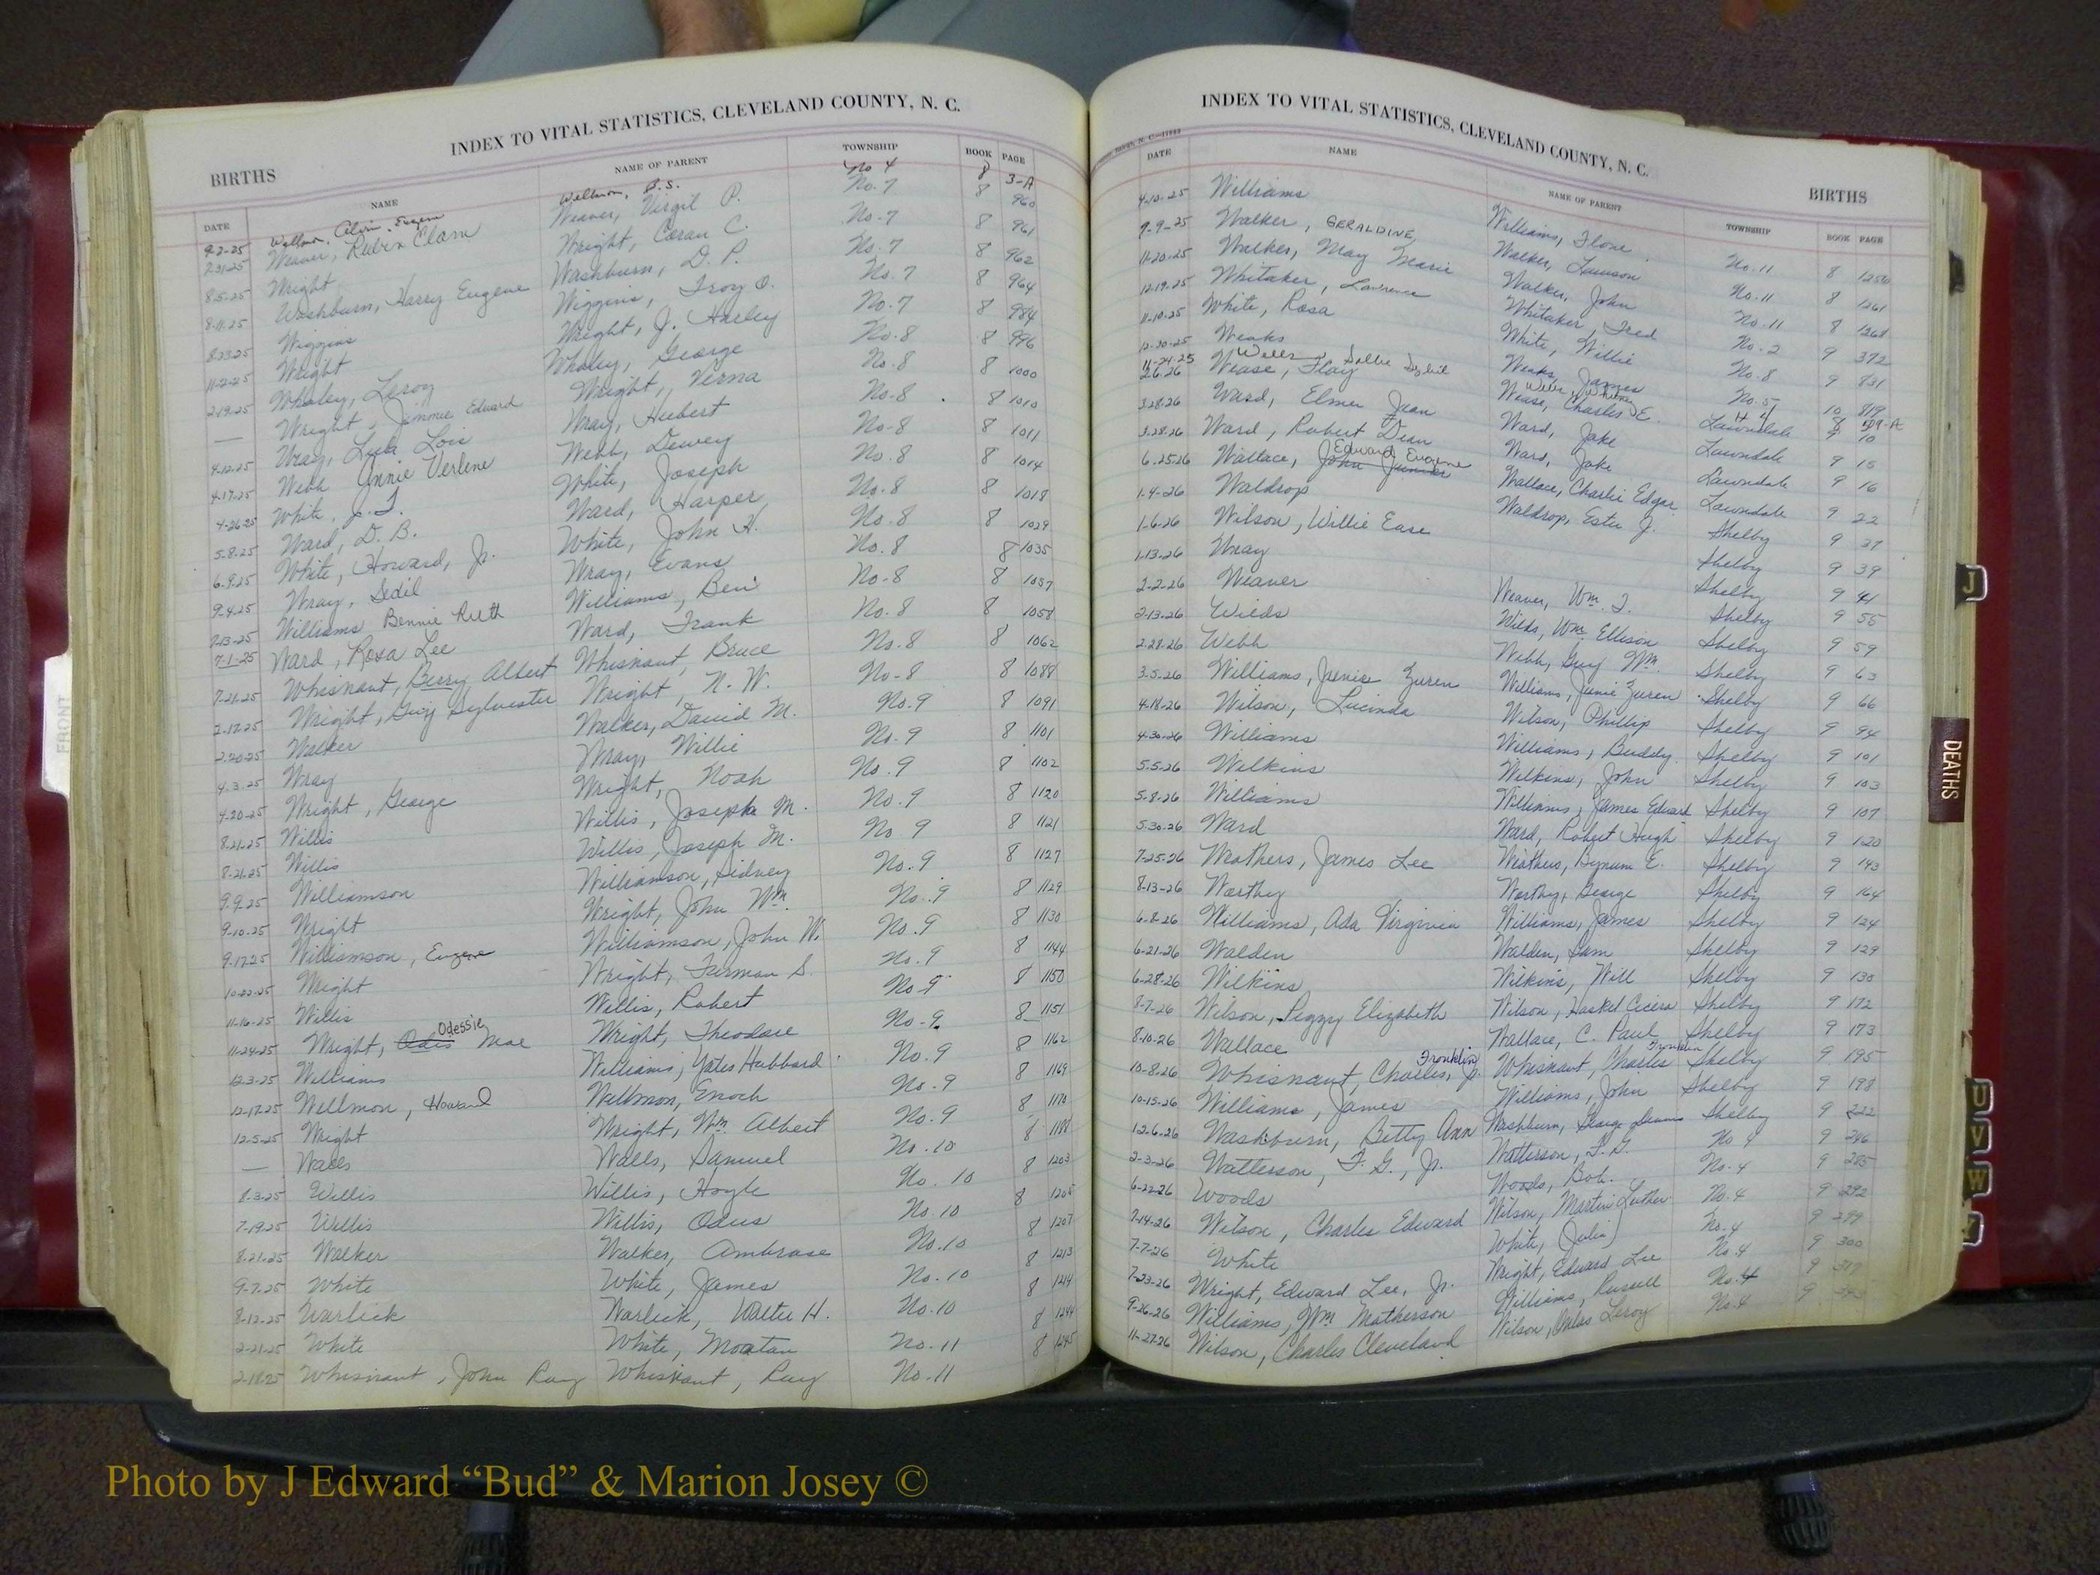 INDEX TO VITAL STATISTICS, CLEVELAND COUNTY, N. C.
BIRTHS
DATE NAME NAME OF PARENT TOWNSHIP BOOK PAGE
9-2-25 Wellmon, Alvin Eugene Wellmon, B.S. No 4 8 3-A
7-31-25 Weaver, Rubin Clam Weaver, Virgil P. No. 7 8 960
8-5-25 Wright Wright, Coran C. No. 7 8 961
8-11-25 Washburn, Harry Eugene Washburn, D. P. No. 7 8 962
8-23-25 Wiggins Wiggins, Troy O. No. 7 8 964
11-2-25 Wright Wright, J. Harley No. 7 8 984
2-19-25 Whaley, Leroy Whaley, George No. 8 8 996
— Wright, Jimmie Edward Wright, Verna No. 8 8 1000
4-12-25 Wray, Lula Lois Wray, Hubert No. 8 8 1010
4-17-25 Webb Annie Verlene Webb, Dewey No. 8 8 1011
4-26-25 White, J. T. White, Joseph No. 8 8 1014
5-8-25 Ward, D. B. Ward, Harper No. 8 8 1018
6-9-25 White, Howard, Jr. White, John H. No. 8 8 1029
9-4-25 Wray, Sedil Wray, Evans No. 8 8 1035
7-13-25 Williams Bennie Ruth Williams, Ben No. 8 8 1057
7-1-25 Ward, Rosa Lee Ward, Frank No. 8 8 1058
7-21-25 Whisnant, Berry Albert Whisnant, Bruce No. 8 8 1062
2-17-25 Wright, Guy Sylvester Wright, N. W. No. 8 8 1088
2-20-25 Walker Walker, David M. No. 9 8 1091
4-3-25 Wray Wray, Willie No. 9 8 1101
4-20-25 Wright, George Wright, Noah No. 9 8 1102
8-21-25 Willis Willis, Joseph M. No. 9 8 1120
8-21-25 Willis Willis, Joseph M. No. 9 8 1121
9-9-25 Williamson Williamson, Sidney No. 9 8 1127
9-10-25 Wright Wright, John Wm. No. 9 8 1129
9-17-25 Williamson, Eugene Williamson, John W. No. 9 8 1130
10-22-25 Wright Wright, Furman S. No. 9 8 1144
11-16-25 Willis Willis, Robert No. 9 8 1150
11-24-25 Wright, Odis Odessie Mae Wright, Theodore No. 9 8 1151
12-3-25 Williams Williams, Yates Hubbard No. 9 8 1162
12-17-25 Wellmon, Howard Wellmon, Enoch No. 9 8 1169
12-5-25 Wright Wright, Wm. Albert No. 9 8 1170
— Walls Walls, Samuel No. 10 8
8-3-25 Willis Willis, Hoyle No. 10 8 1203
7-19-25 Willis Willis, Odus No. 10 8 1205
8-21-25 Walker Walker, Ambrose No. 10 8 1207
9-7-25 White White, James No. 10 8 1213
8-12-25 Warlick Warlick, Walter H. No. 10 8 1214
2-21-25 White White, Moatan No. 11 8 1244
2-18-25 Whisnant, John Ray Whisnant, Ray No. 11 8 1245
INDEX TO VITAL STATISTICS, CLEVELAND COUNTY, N. C.
BIRTHS
DATE NAME NAME OF PARENT TOWNSHIP BOOK PAGE
4-10-25 Williams Williams, Flone No. 11 8 1256
9-9-25 Walker, GERALDINE Walker, Lawson No. 11 8 1261
11-20-25 Walker, May Marie Walker, John No. 11 8 1268
12-19-25 Whitaker, Lawrence Whitaker, Fred No. 2 9 372
11-10-25 White, Rosa White, Willie No. 8 9 831
12-20-25 Weaks Weaks, James No. 5 10 819
11-24-25 Webb, Sallie Webb, # 4 8 509-A
2-6-26 Wease, Flay Wease, Charles E. Lawndale 9 10
3-28-26 Ward, Elmer Jean Ward, Jake Lawndale 9 15
3-28-26 Ward, Robert Dean Ward, Jake Lawndale 9 16
6-25-26 Wallace, John Junior Edward Eugene Wallace, Charlie Edgar Lawndale 9 22
1-4-26 Waldrop Waldrop, Ester J. Shelby 9 37
1-6-26 Wilson, Willie Ease Shelby 9 39
1-13-26 Wray Shelby 9 41
2-2-26 Weaver Weaver, Wm. T. Shelby 9 55
2-13-26 Wilds Wilds, Wm. Ellison Shelby 9 59
2-28-26 Webb Webb, Guy Wm. Shelby 9 63
3-5-26 Williams, Junie Zuren Williams, Junie Zuren Shelby 9 66
4-18-26 Wilson, Lucinda Wilson, Phillip Shelby 9 94
4-30-26 Williams Williams, Buddy Shelby 9 101
5-5-26 Wilkins Wilkins, John Shelby 9 103
5-8-26 Williams Williams, James Edward Shelby 9 107
5-30-26 Ward Ward, Robert Hugh Shelby 9 120
7-25-26 Weathers, James Lee Weathers, Bynum E. Shelby 9 143
8-13-26 Worthy Worthy, George Shelby 9 164
6-8-26 Williams, Ada Virginia Williams, James Shelby 9 124
6-21-26 Walden Walden, Sam Shelby 9 129
6-28-26 Wilkins Wilkins, Will Shelby 9 130
8-7-26 Wilson, Peggy Elizabeth Wilson, Haskel Cicero Shelby 9 172
8-10-26 Wallace Wallace, C. Paul Shelby 9 173
10-8-26 Whisnant, Charles, Franklin Jr. Whisnant, Charles Franklin Shelby 9 195
10-15-26 Williams, James Williams, John Shelby 9 198
12-6-26 Washburn, Betty Ann Washburn, George Shelby 9 222
2-3-26 Watterson, F. G., Jr. Watterson, F. G. No 4 9 246
6-22-26 Woods Woods, Bob. No. 4 9 285
7-14-26 Wilson, Charles Edward Wilson, Martin Luther No. 4 9 292
7-7-26 White White, Julia No. 4 9 299
7-23-26 Wright, Edward Lee, Jr. Wright, Edward Lee No. 4 9 300
9-26-26 Williams, Wm. Matherson Williams, Russell No. 4 9
11-27-26 Wilson, Charles Cleveland Wilson, Leroy No. 4 9
FRONT
J
DEATHS
U
V
W
Photo by J Edward “Bud” & Marion Josey ©